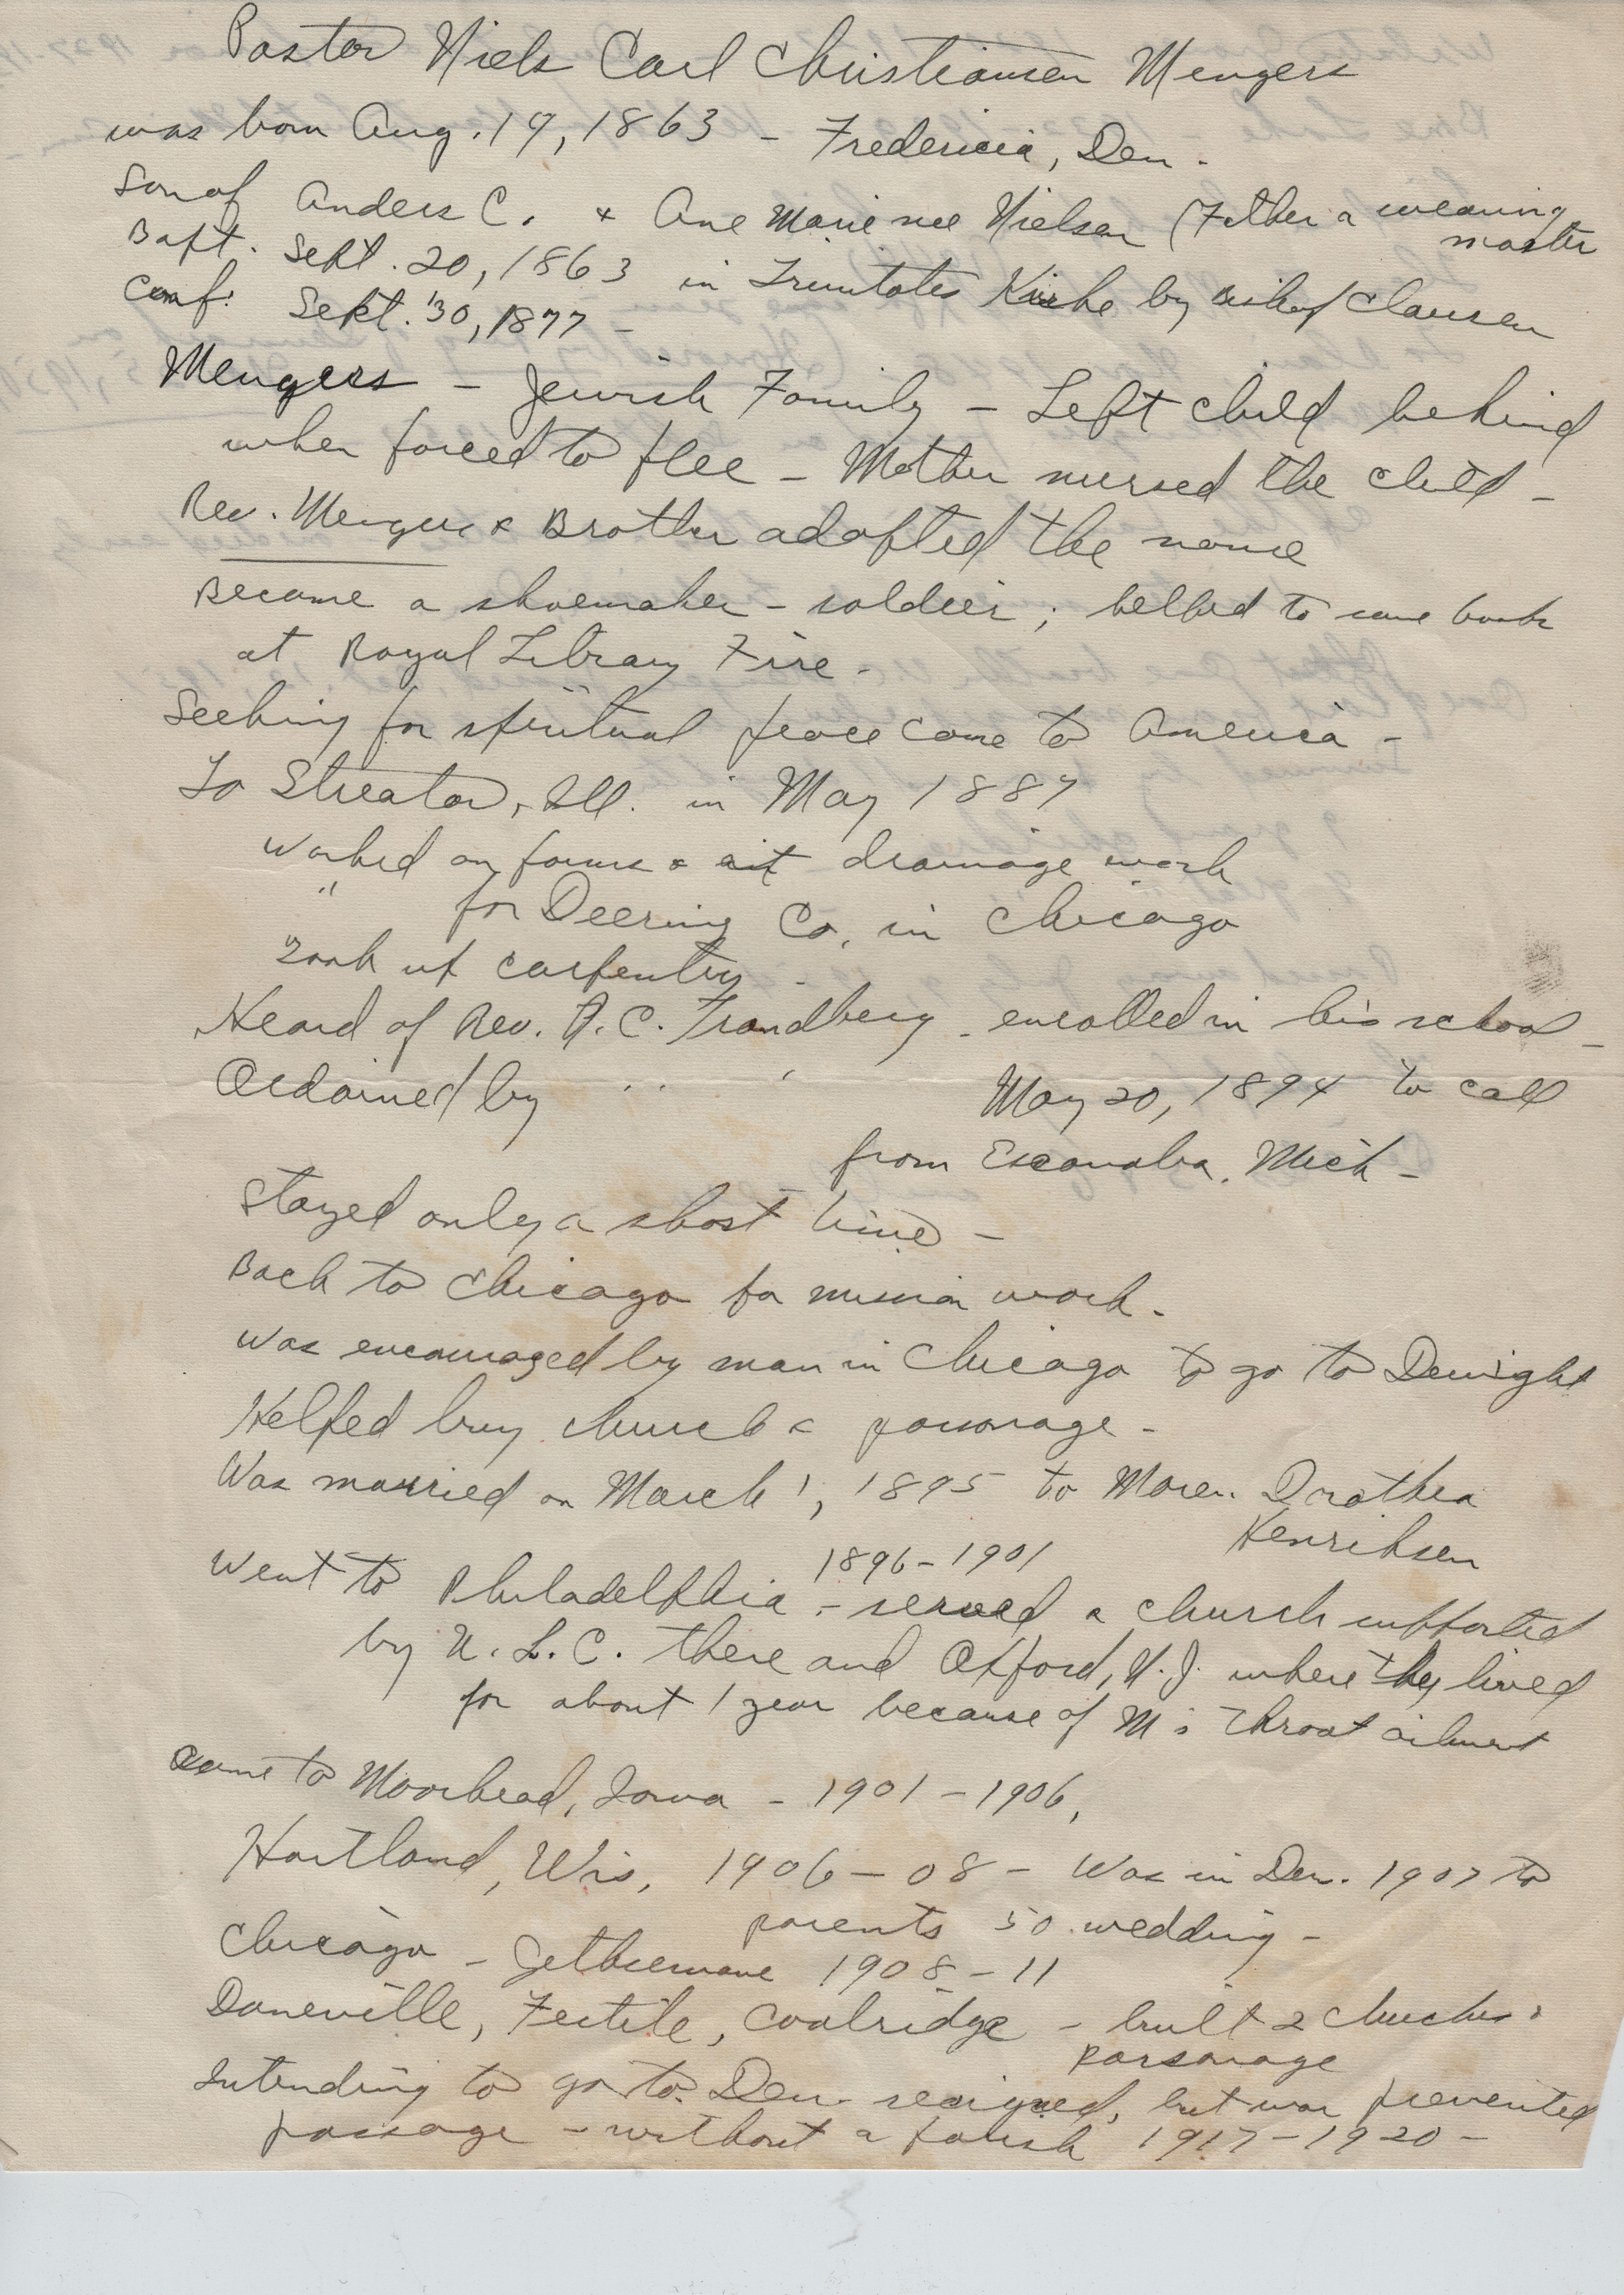 Pastor Niels Carl Christiansen Mengers
was born Aug. 19, 1863 - Fredericia, Den.
Son of Anders C. & Ane Marie nee Nielsen (Father a weaving
master
Bapt. Sept. 20, 1863 in Trinitates Kirke by Clausen
Conf. Sept. 30, 1877 -
Mengers - Jewish Family - Left child behind
when forced to flee - Mother nursed the child -
Rev. Mengers & Brother adopted the name
Became a shoemaker - soldier; helped to save books
at Royal Library Fire -
Seeking for spiritual peace came to America -
To Streator, Ill. in May 1887
Worked on farms & at drainage work
" for Deering Co. in Chicago
Took up carpentry -
Heard of Rev. P. C. Trandberg - enrolled in his school -
Ordained by " " May 20, 1894 to call
from Escanaba, Mich -
Stayed only a short time -
Back to Chicago for mission work -
Was encouraged by man in Chicago to go to Dwight
Helped buy church & parsonage -
Was married on March 1, 1895 to Maren Dorothea
Henriksen
1896-1901
Went to Philadelphia - served a church supported
by U. L. C. there and Oxford, N. J. where they lived
for about 1 year because of M's throat ailment
Came to Moorhead, Iowa - 1901-1906,
Hartland, Wis, 1906-08 - Was in Den. 1907 to
parents 50 wedding -
Chicago - Gethsemane 1908-11
Daneville, Fertile, Coalridge - built 2 churches &
parsonage
Intending to go to Den resigned, but war prevented
passage - without a parish 1917-1920 -